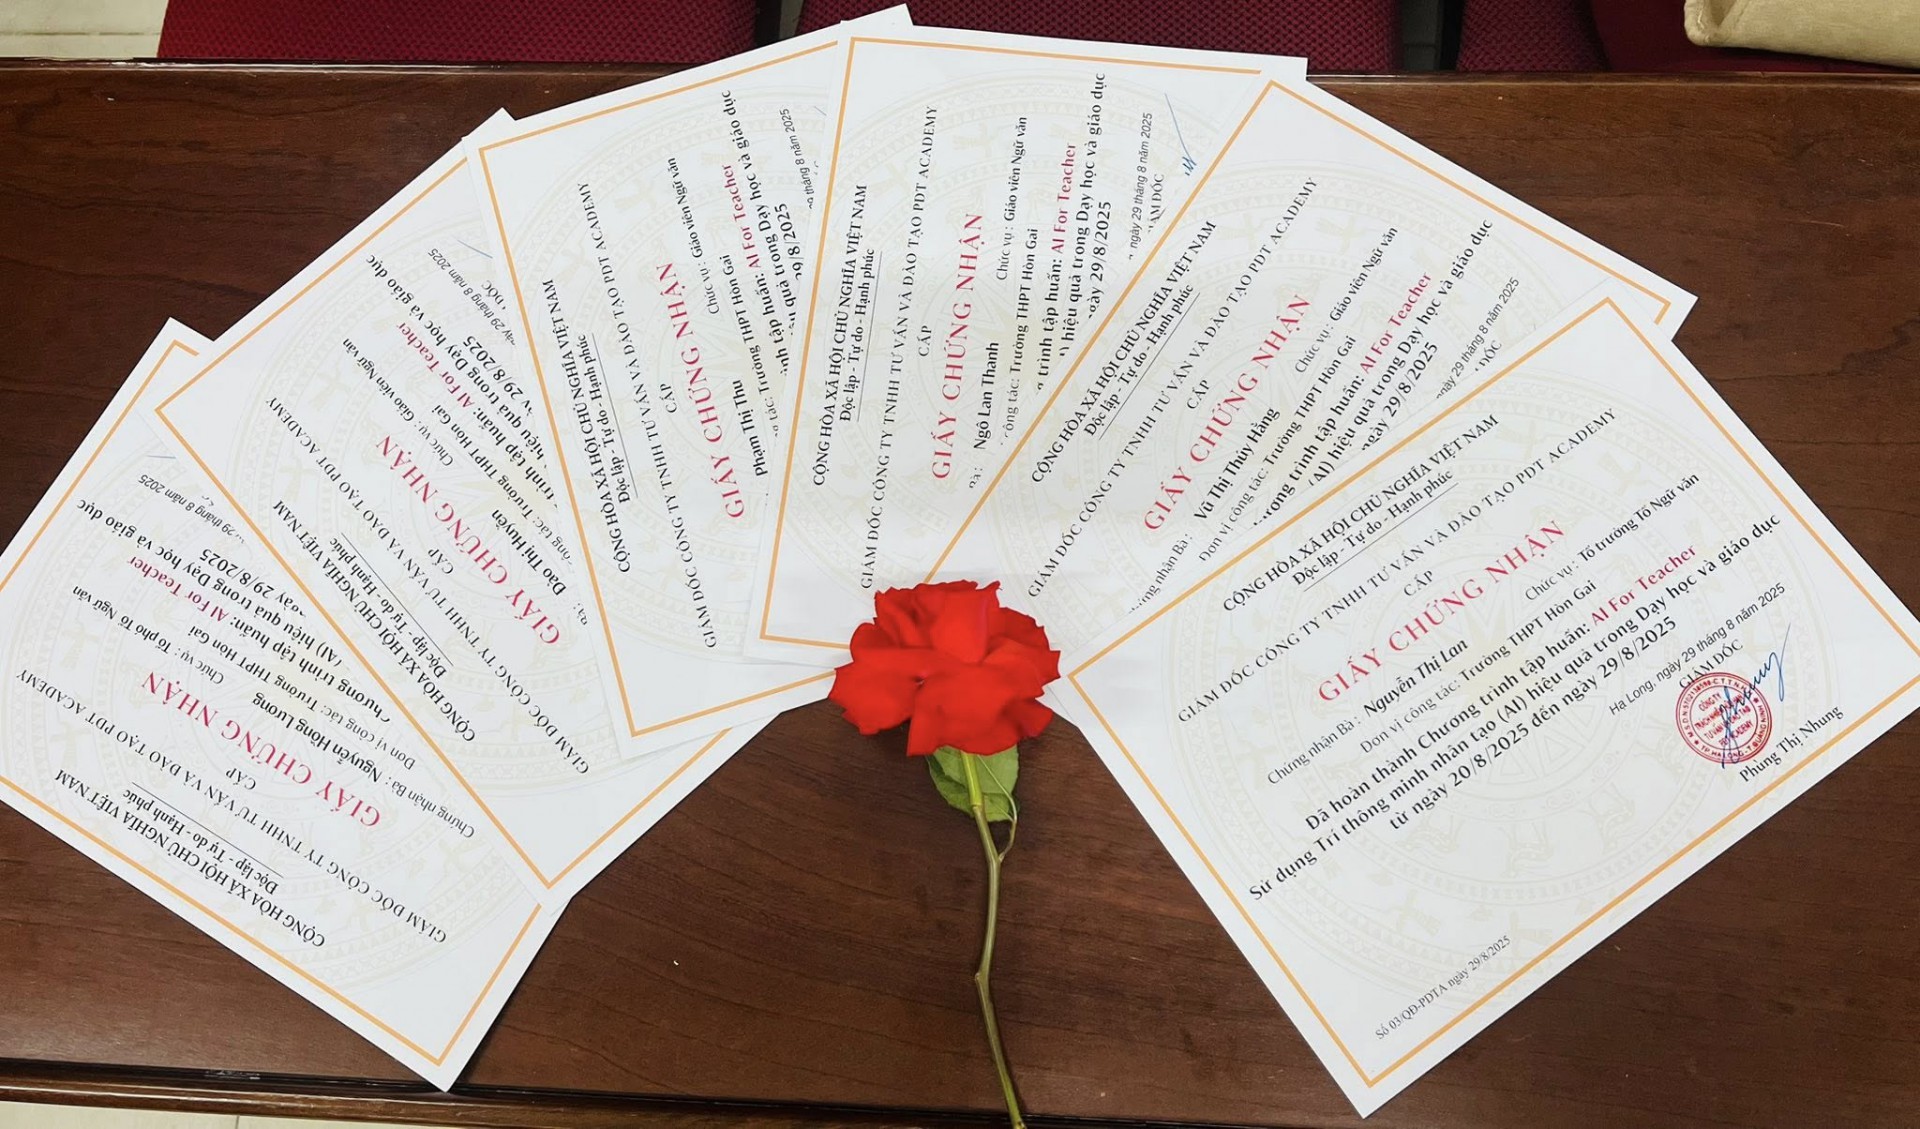 CỘNG HÒA XÃ HỘI CHỦ NGHĨA VIỆT NAM
Độc lập - Tự do - Hạnh phúc
GIÁM ĐỐC CÔNG TY TNHH TƯ VẤN VÀ ĐÀO TẠO PDT ACADEMY
CẤP
GIẤY CHỨNG NHẬN
Chứng nhận Bà : Nguyễn Hồng Lương
Chức vụ : Tổ phó Tổ Ngữ văn
Đơn vị công tác: Trường THPT Hòn Gai
chương trình tập huấn: AI For Teacher
(AI) hiệu quả trong Dạy học và giáo dục
29/8/2025
29 tháng 8 năm 2025
CỘNG HÒA XÃ HỘI CHỦ NGHĨA VIỆT NAM
Độc lập - Tự do - Hạnh phúc
GIÁM ĐỐC CÔNG TY TNHH TƯ VẤN VÀ ĐÀO TẠO PDT ACADEMY
CẤP
GIẤY CHỨNG NHẬN
Bà : Đào Thị Huyền
Chức vụ : Giáo viên Ngữ văn
công tác: Trường THPT Hòn Gai
trình tập huấn: AI For Teacher
hiệu quả trong Dạy học và giáo dục
29/8/2025
29 tháng 8 năm 2025
ĐỐC
CỘNG HÒA XÃ HỘI CHỦ NGHĨA VIỆT NAM
Độc lập - Tự do - Hạnh phúc
GIÁM ĐỐC CÔNG TY TNHH TƯ VẤN VÀ ĐÀO TẠO PDT ACADEMY
CẤP
GIẤY CHỨNG NHẬN
Phạm Thị Thu
Chức vụ : Giáo viên Ngữ văn
tác: Trường THPT Hòn Gai
tập huấn: AI For Teacher
quả trong Dạy học và giáo dục
29/8/2025
29 tháng 8 năm 2025
CỘNG HÒA XÃ HỘI CHỦ NGHĨA VIỆT NAM
Độc lập - Tự do - Hạnh phúc
GIÁM ĐỐC CÔNG TY TNHH TƯ VẤN VÀ ĐÀO TẠO PDT ACADEMY
CẤP
GIẤY CHỨNG NHẬN
Bà : Ngô Lan Thanh
Chức vụ : Giáo viên Ngữ văn
công tác: Trường THPT Hòn Gai
trình tập huấn: AI For Teacher
hiệu quả trong Dạy học và giáo dục
ngày 29/8/2025
ngày 29 tháng 8 năm 2025
GIÁM ĐỐC
CỘNG HÒA XÃ HỘI CHỦ NGHĨA VIỆT NAM
Độc lập - Tự do - Hạnh phúc
GIÁM ĐỐC CÔNG TY TNHH TƯ VẤN VÀ ĐÀO TẠO PDT ACADEMY
CẤP
GIẤY CHỨNG NHẬN
Chứng nhận Bà : Vũ Thị Thúy Hằng
Chức vụ : Giáo viên Ngữ văn
Đơn vị công tác: Trường THPT Hòn Gai
chương trình tập huấn: AI For Teacher
(AI) hiệu quả trong Dạy học và giáo dục
ngày 29/8/2025
ngày 29 tháng 8 năm 2025
ĐỐC
CỘNG HÒA XÃ HỘI CHỦ NGHĨA VIỆT NAM
Độc lập - Tự do - Hạnh phúc
GIÁM ĐỐC CÔNG TY TNHH TƯ VẤN VÀ ĐÀO TẠO PDT ACADEMY
CẤP
GIẤY CHỨNG NHẬN
Chứng nhận Bà : Nguyễn Thị Lan
Chức vụ : Tổ trưởng Tổ Ngữ văn
Đơn vị công tác: Trường THPT Hòn Gai
Đã hoàn thành Chương trình tập huấn: AI For Teacher
Sử dụng Trí thông minh nhân tạo (AI) hiệu quả trong Dạy học và giáo dục
từ ngày 20/8/2025 đến ngày 29/8/2025
Hạ Long, ngày 29 tháng 8 năm 2025
GIÁM ĐỐC
Phùng Thị Nhung
Số 03/QĐ-PDTA ngày 29/8/2025